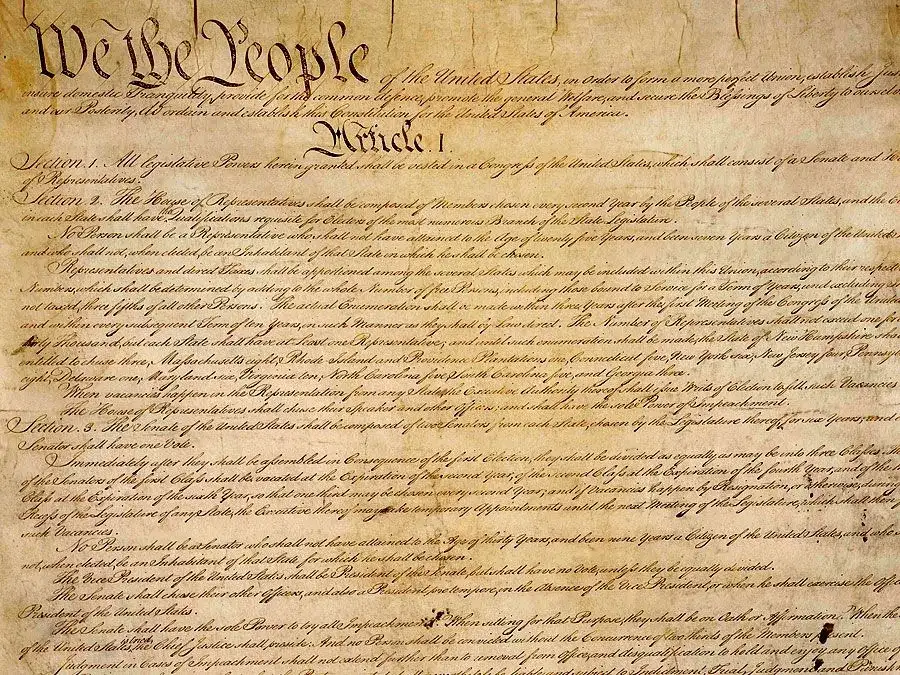 We the People of the United States, in Order to form a more perfect Union, establish Jus
insure domestic Tranquility, provide for the common defence, promote the general Welfare, and secure the Blessings of Liberty to oursel
and our Posterity, do ordain and establish this Constitution for the United States of America.
Article. I.
Section. 1. All legislative Powers herein granted shall be vested in a Congress of the United States, which shall consist of a Senate and
of Representatives.
Section. 2. The House of Representatives shall be composed of Members chosen every second Year by the People of the several States, and the
in each State shall have the Qualifications requisite for Electors of the most numerous Branch of the State Legislature.
No Person shall be a Representative who shall not have attained to the Age of twenty five Years, and been seven Years a Citizen of the United
and who shall not, when elected, be an Inhabitant of that State in which he shall be chosen.
Representatives and direct Taxes shall be apportioned among the several States which may be included within this Union, according to their respect
Numbers, which shall be determined by adding to the whole Number of free Persons, including those bound to Service for a Term of Years, and excluding
not taxed, three fifths of all other Persons. The actual Enumeration shall be made within three Years after the first Meeting of the Congress of the United
and within every subsequent Term of ten Years, in such Manner as they shall by Law direct. The Number of Representatives shall not exceed one for
thirty Thousand, but each State shall have at Least one Representative; and until such enumeration shall be made, the State of New Hampshire shal
entitled to chuse three, Massachusetts eight, Rhode Island and Providence Plantations one, Connecticut five, New York six, New Jersey four, Pennsyl
eight, Delaware one, Maryland six, Virginia ten, North Carolina five, South Carolina five, and Georgia three.
When vacancies happen in the Representation from any State, the Executive Authority thereof shall issue Writs of Election to fill such Vacancies.
The House of Representatives shall chuse their Speaker and other Officers; and shall have the sole Power of Impeachment.
Section. 3. The Senate of the United States shall be composed of two Senators from each State, chosen by the Legislature thereof, for six Years; and
Senator shall have one Vote.
Immediately after they shall be assembled in Consequence of the first Election, they shall be divided as equally as may be into three Classes. The
of the Senators of the first Class shall be vacated at the Expiration of the second Year, of the second Class at the Expiration of the fourth Year, and of the
Class at the Expiration of the sixth Year, so that one third may be chosen every second Year; and if Vacancies happen by Resignation, or otherwise, during
Recess of the Legislature of any State, the Executive thereof may make temporary Appointments until the next Meeting of the Legislature, which shall then
such Vacancies.
No Person shall be a Senator who shall not have attained to the Age of thirty Years, and been nine Years a Citizen of the United States, and who
not, when elected, be an Inhabitant of that State for which he shall be chosen.
The Vice President of the United States shall be President of the Senate, but shall have no Vote, unless they be equally divided.
The Senate shall chuse their other Officers, and also a President pro tempore, in the Absence of the Vice President, or when he shall exercise the Office
President of the United States.
The Senate shall have the sole Power to try all Impeachments. When sitting for that Purpose, they shall be on Oath or Affirmation. When the
of the United States is tried, the Chief Justice shall preside: And no Person shall be convicted without the Concurrence of two thirds of the Members present.
Judgment in Cases of Impeachment shall not extend further than to removal from Office, and disqualification to hold and enjoy any Office of